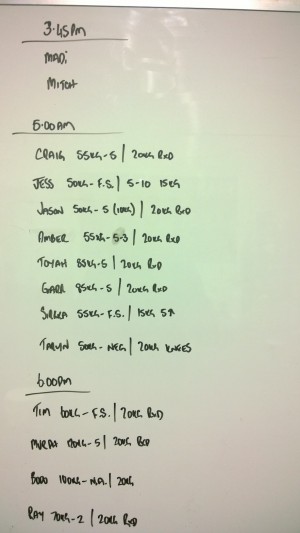 3.45PM
MADi
MITCH
5:00AM
CRAIG 55KG-5 | 20KG RXD
JESS 50KG-F.S. | 5-10 15KG
JASON 50KG-5 (10KG) | 20KG RXD
AMBER 55KG-5-3 | 20KG RXD
TOYAH 85KG-5 | 20KG RXD
GARR 85KG-5 | 20KG RXD
55KG-F.S. | 15KG
TARYN 50KG-NEG | 20KG KNEES
6:00PM
TIM 60KG-F.S. | 20KG RXD
120KG-5 | 20KG RXD
BODO 100KG- | 20KG
RAY 70KG-2 | 20KG RXD